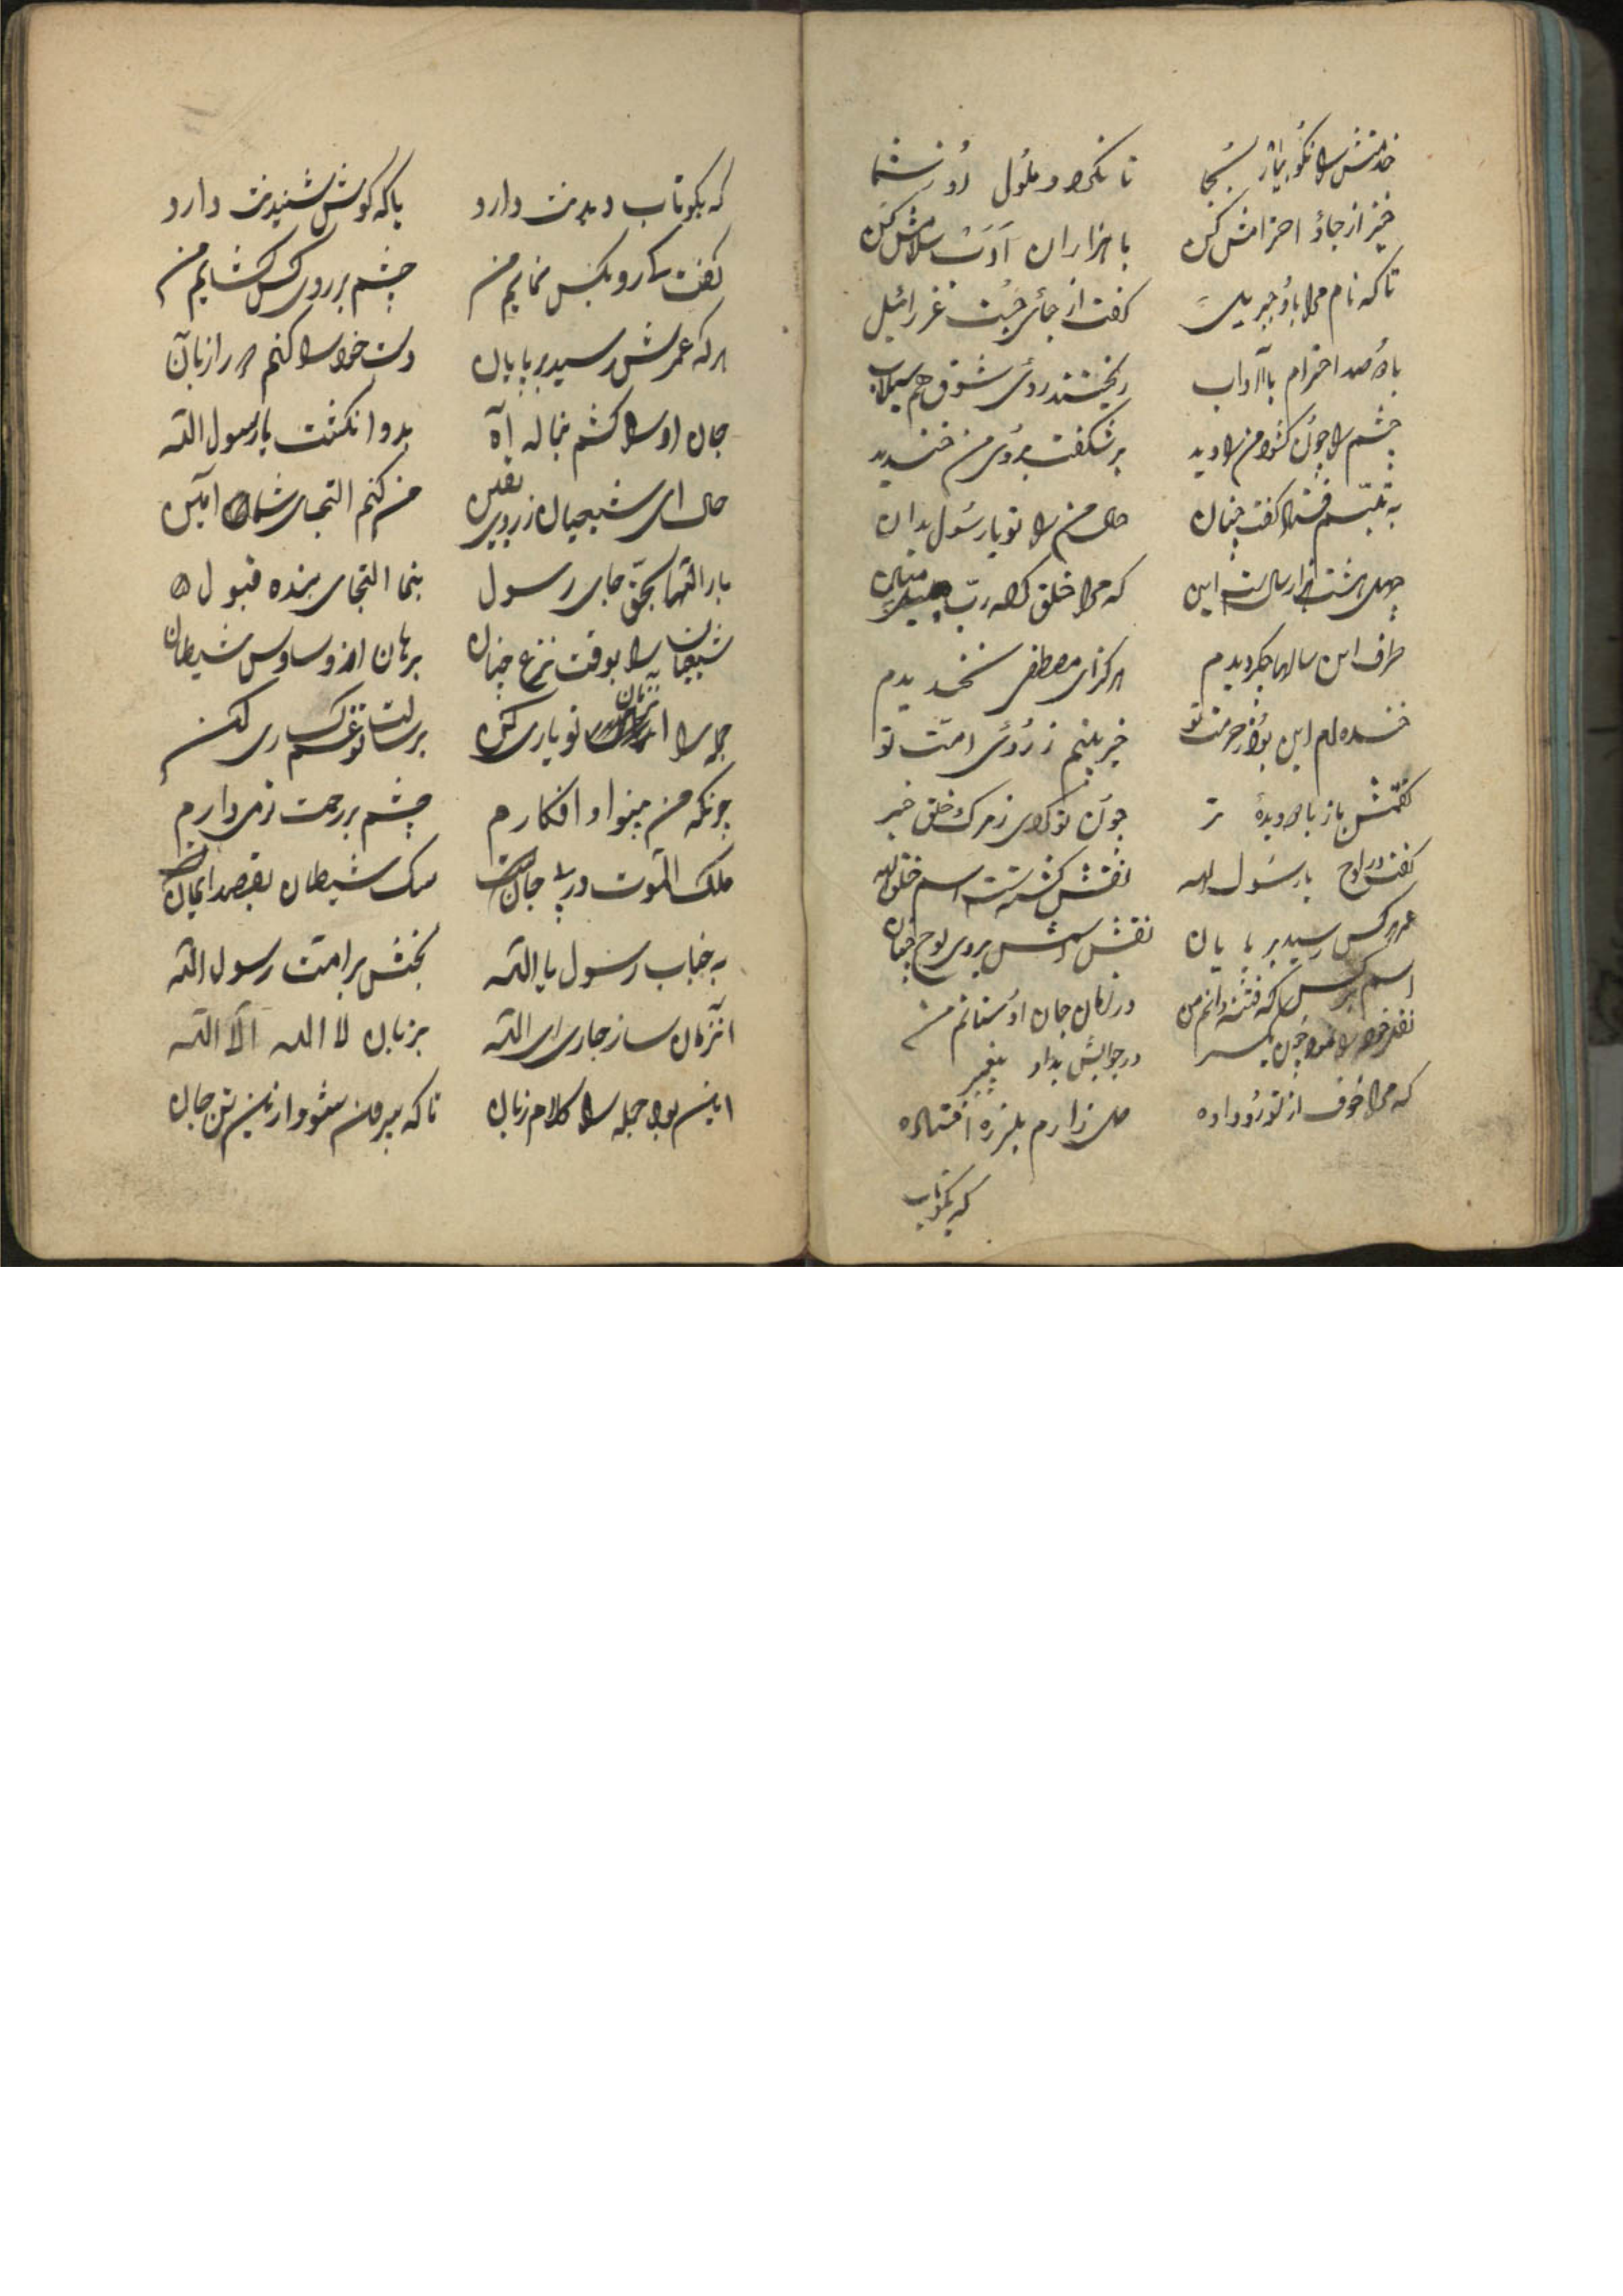 خدمتش را نکو بیار بجا تا نگردد ملول از شما
خیز از جا و احترامش کن با هزاران ادب سلامش کن
تا که نام مرا باو جبریل گفت از جای جست عزرائیل
با دو صد احترام با آداب ریختند روی شوق هم سیلاب
چشم را چون گشود من را دید بر شگفت بروی من خندید
به تبسم گفت چنان حال من را تو یا رسول بدان
که مرا خلق کرده رب
طرف این سالها چگردیدم هرگز ای مصطفی نخندیدم
خنده ام این بود ز حرمت تو خیر بینم ز روی امت تو
گفتمش باز با دو دیدهٔ تر چون تو داری ز مرک خلق خبر
گفت در لوح یا رسول الله نقش گشته است اسم خلق الله
عمر هر کس رسید بر پایان نقش اسمش بروی لوح چنان
اسم هر کس که دانم من در زمان جان او ستانم من
در جوابش بداد پیغمبر
که مرا خوف از تو رو داده دل زارم بلرزه افتاده
که بگو تاب
که بگو تاب دیدنت دارد یا که گوش شنیدنت دارد
گفت کی رو بکس نمایم من چشم بر روی کس گشایم من
هر که عمرش رسید بر پایان دست خود را کنم دراز بآن
جان او را کشم بناله آه بدو انگشت یا رسول الله
حال ای شیعیان ز روی یقین من کنم التجا شما آمین
بار الها بحق جای رسول بنما التجای بنده قبول
شیعیان را بوقت نزع چنان برهان از وساوس شیطان
جمله را آنزمان تو یاری کن برسالت تو غمگساری کن
چونکه من بینوا و افکارم چشم بر رحمتت زمی دارم
ملک الموت در پی جان است سک شیطان بقصد ایمان است
به جناب رسول یا الله بخش بر امت رسول الله
آنزمان ساز جاری ای الله بزبان لا اله الا الله
این بود جمله را کلام زبان تا که بیرون شود ازین تن جان